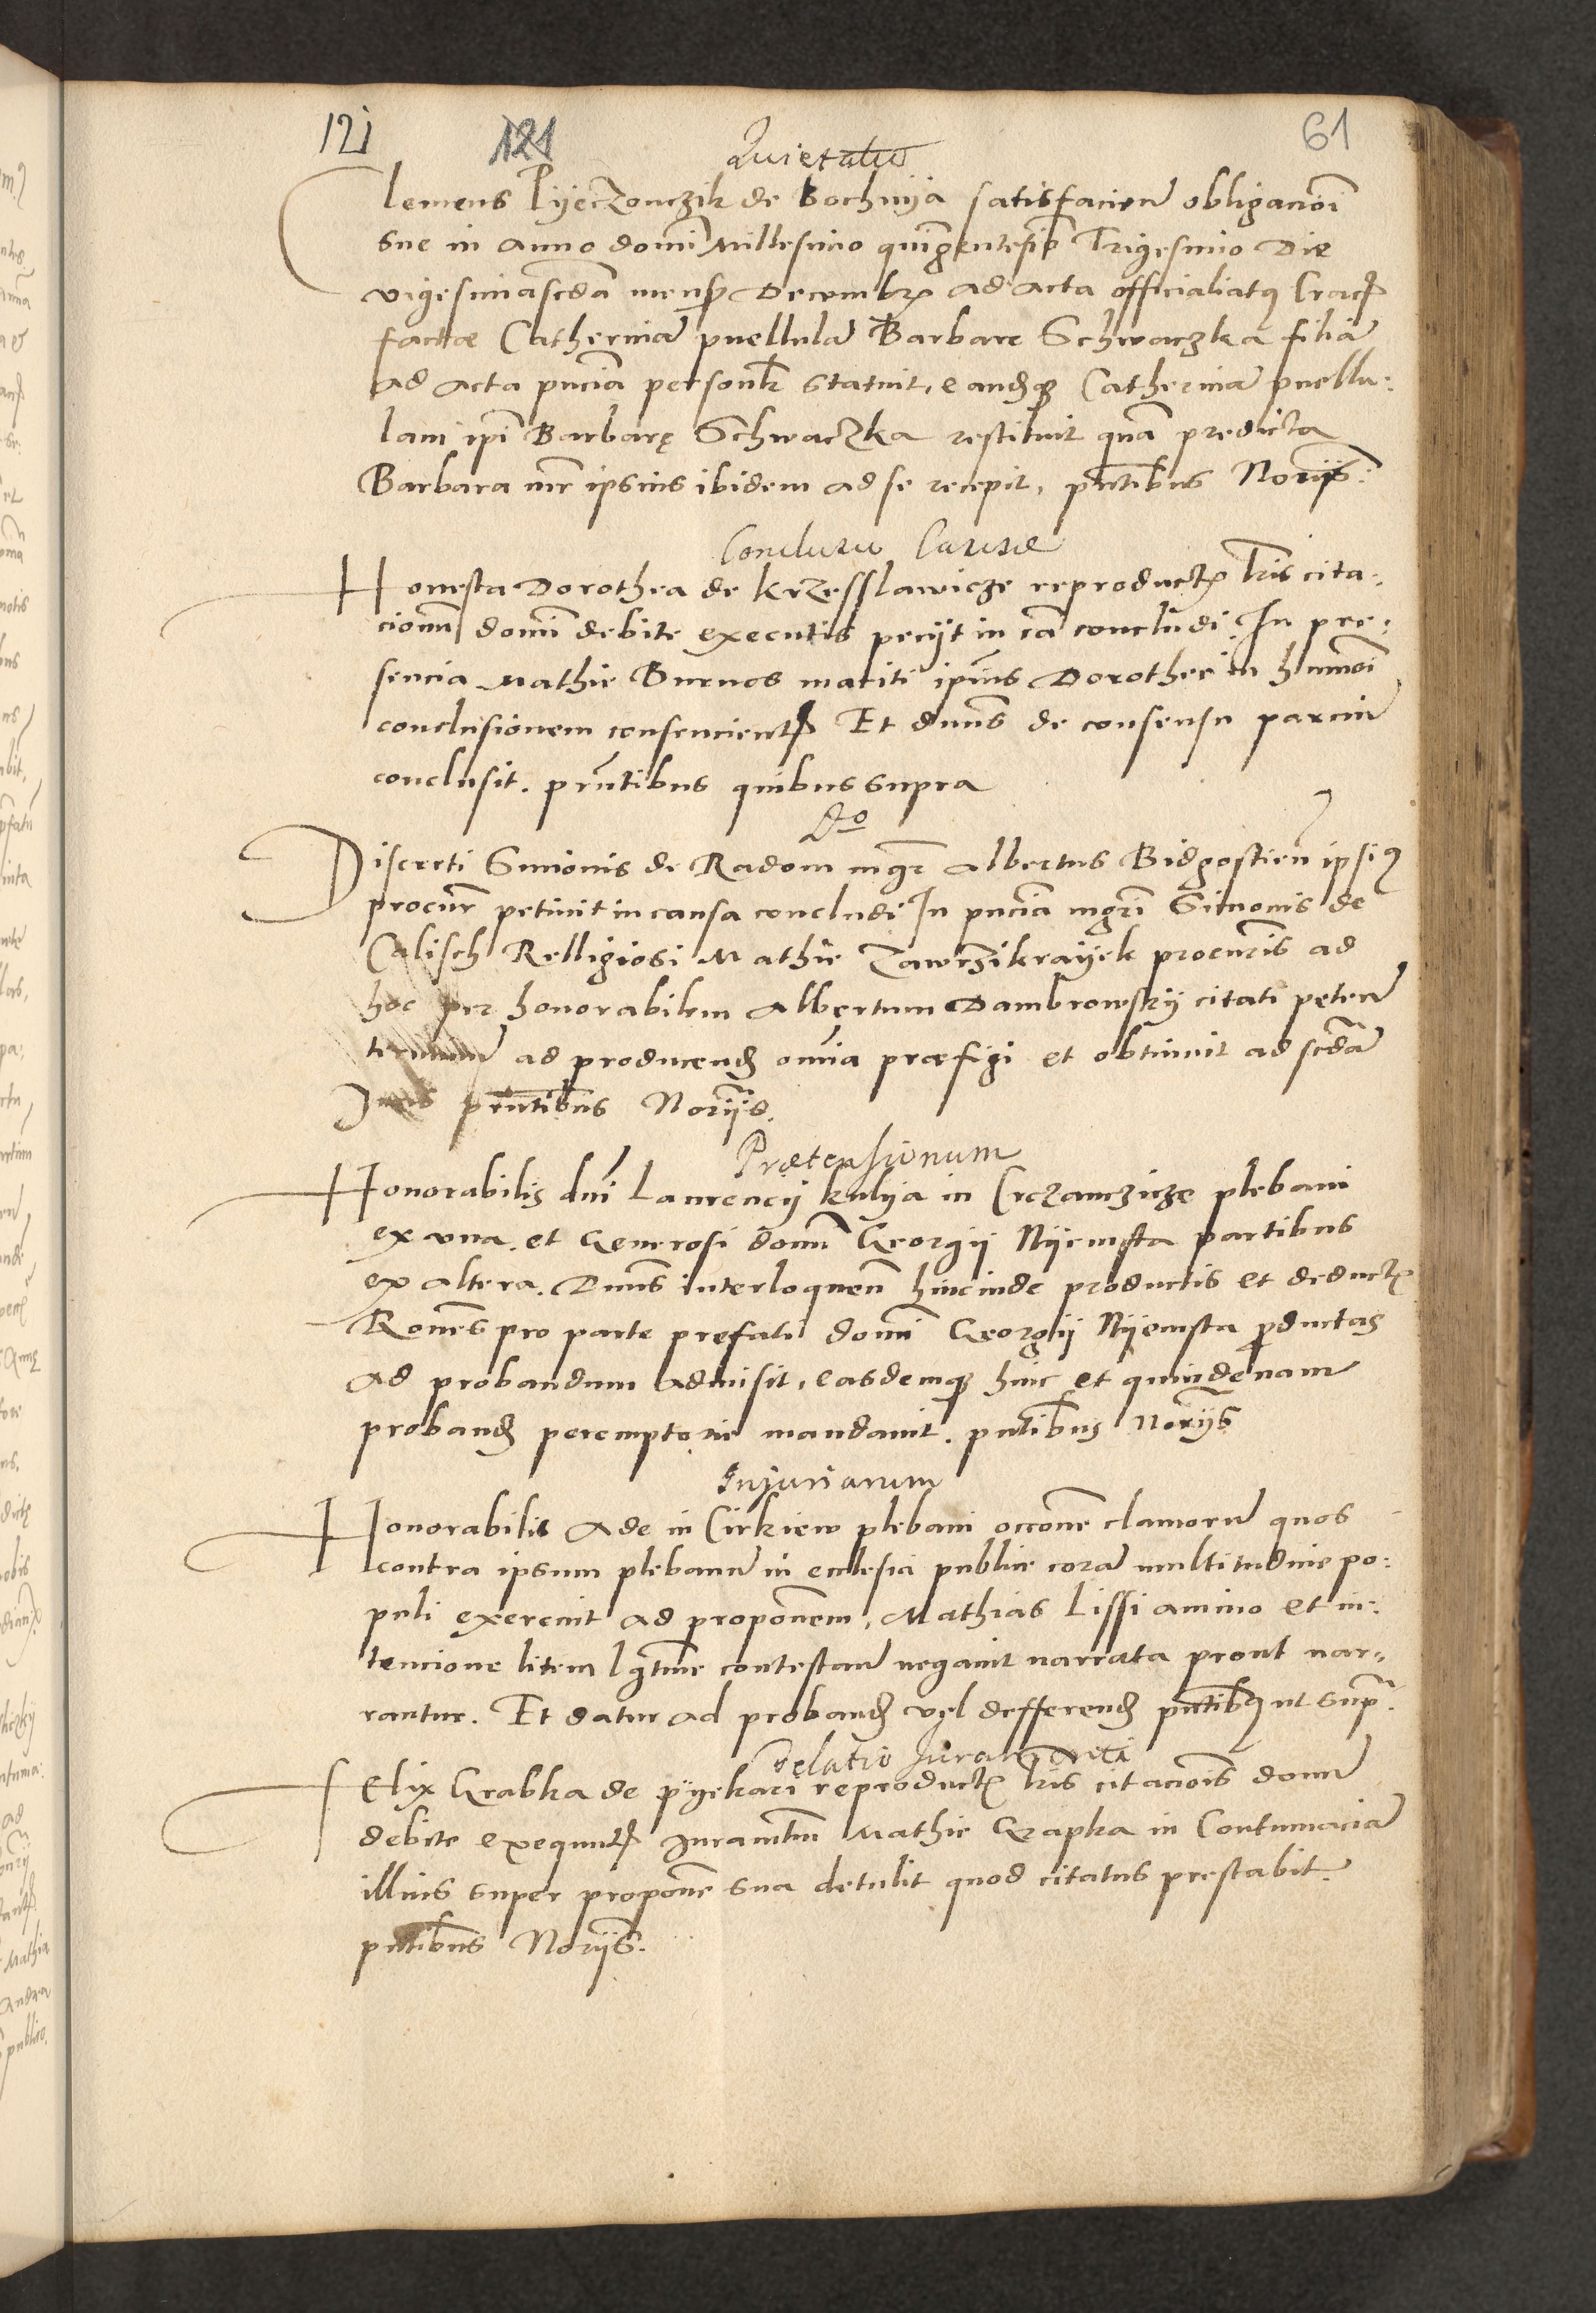 121 121 61
Quietatio
Clemens Pyeczonczik de Bochnya satisfacien obligacioni
sue in anno domini Millesimo quingentesimo Trigesimo Die
vigesimascda mensis Decembr ad acta officialiatus Crac
factae Catherinam puellulam Barbare Schwaczka filiam
ad acta pnciam personlr statuit, eandemque Catherinam puellu:
lam ipi Barbarę Schwaczka restituit quam predicta
Barbara mr ipsius ibidem ad se recepit, pntibus Noriis:
Conclusio Causae
Honesta Dorothea de Krzesslawicze reproductis lris cita:
cionum domi debite executis peciit in ca concludi In pre:
sencia Mathie Burnos mariti ipius Dorothee in hmoi
conclusionem consencient Et dnus de consensu parcium
conclusit. prntibus quibus supra
Do
Discreti Simonis de Radom mgr Albertus Bidgostien ipsius
procur petiuit in causa concludi In pncia mgri Simonis de
Calisch Relligiosi Mathie Zawrzikrayek procuris ad
hoc per honorabilem Albertum Dambrowsky citati peten
terminum ad producend omnia praefigi et obtinuit ad scdam
Juris prntibus Noriis.
Praetensionum
Honorabilis dni Laurencij Kulya in Crczanczicze plebani
ex vna. et Generosi domi Georgij Nyemsta partibus
ex altera. Dnus interloquen hincinde productis et deductis
Rones pro parte prefati domi Georgij Nyemsta productas
ad probandum admisit, easdemque hinc et quindenam
proband peremptorie mandauit. pntibus Noriis
Injuriarum
Honorabilis Ade in Cirkiew plebani occone clamorum quos
contra ipsum plebanum in ecclesia publice coram multitudine po:
puli exercuit ad proponem, Mathias Lissi animo et in:
tencione litem lgtime contestan negauit narrata prout nar:
rantur. Et datur ad proband vel defferend pntibus ut supra
Delatio Juramenti
Felix Grabka de pyekari reproductis lris citacionis domi
debite exequut Juramtum Mathie Grapka in Contumaciam
illius super propone sua detulit quod citatus prestabit
pntibus Noriis.